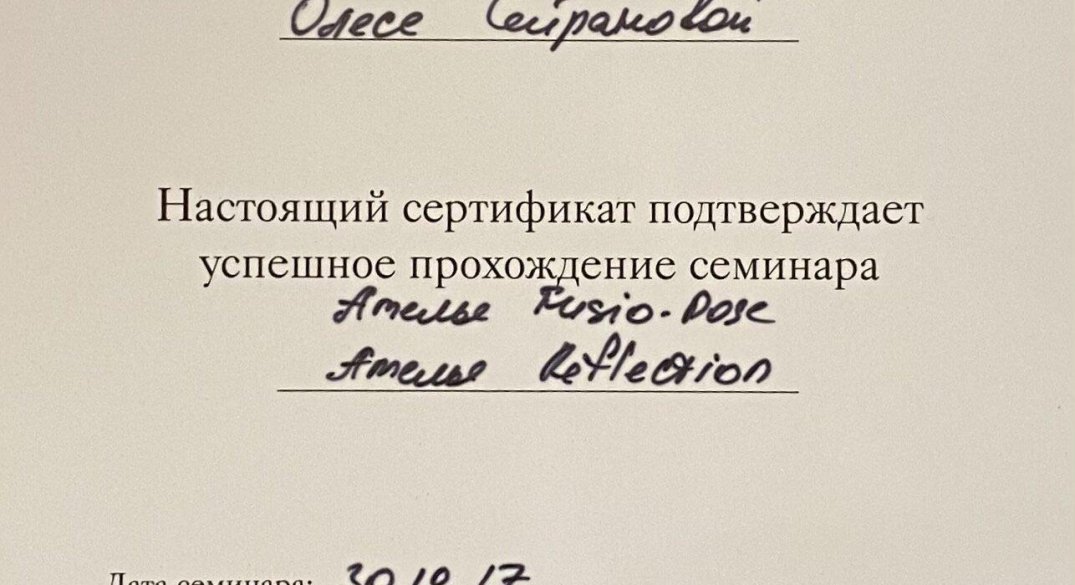 Олесе Сейрановой
Настоящий сертификат подтверждает
успешное прохождение семинара
Ателье Fusio-Dose
Ателье Reflection
Дата семинара: 30.10.17